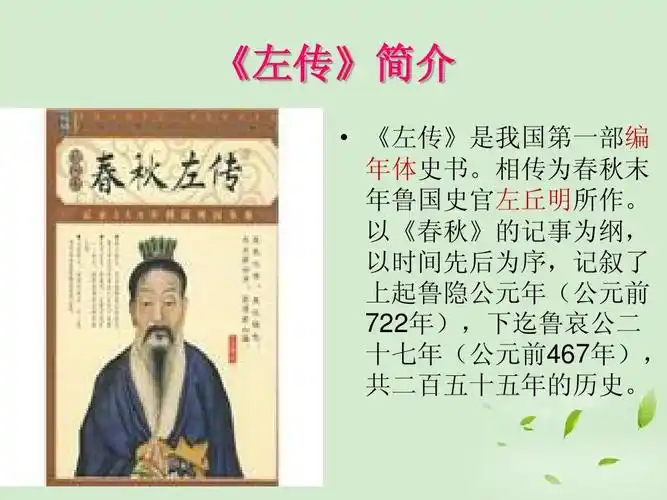 《左传》简介
春秋左传
• 《左传》是我国第一部编
年体史书。相传为春秋末
年鲁国史官左丘明所作。
以《春秋》的记事为纲，
以时间先后为序，记叙了
上起鲁隐公元年（公元前
722年），下迄鲁哀公二
十七年（公元前467年），
共二百五十五年的历史。